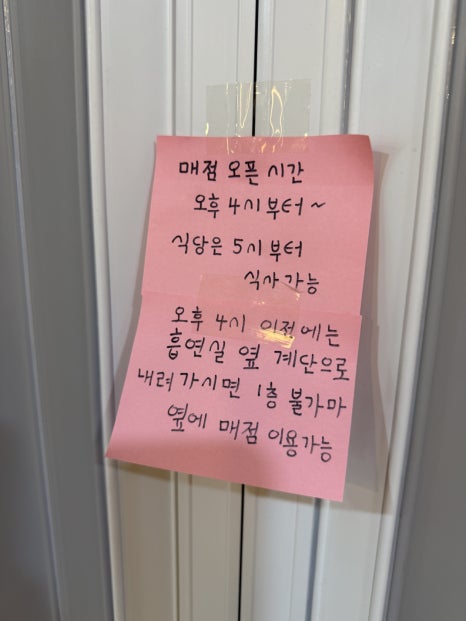 매점 오픈 시간
오후 4시부터~
식당은 5시부터
식사가능
오후 4시 이전에는
흡연실 옆 계단으로
내려가시면 1층 불가마
옆에 매점 이용가능